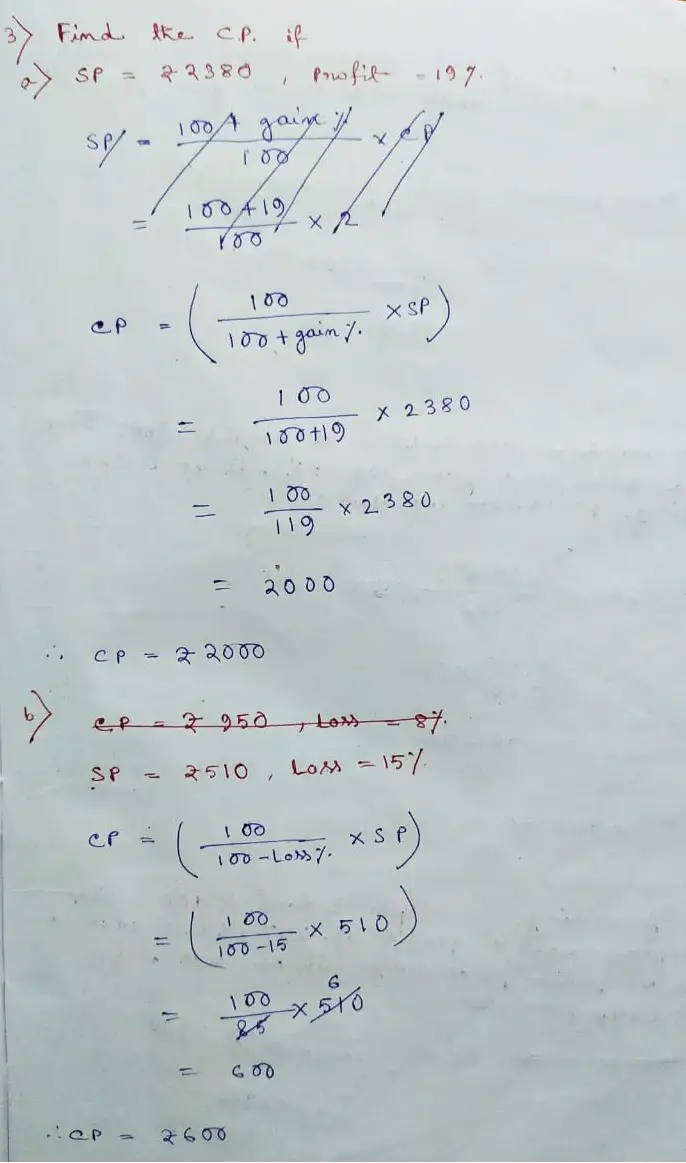 3) Find the C.P. if
a) SP = ₹2380, Profit = 19%.
SP = 100 + gain % / 100 × CP
= 100 + 19 / 100 × 2
CP = ( 100 / 100 + gain %. × SP )
= 100 / 100+19 × 2380
= 100 / 119 × 2380
= 2000
∴ CP = ₹2000
b) CP = ₹950, Loss = 8%.
SP = ₹510, Loss = 15%.
CP = ( 100 / 100 - Loss %. × SP )
= ( 100 / 100-15 × 510 )
= 100 / 85 × 510 6
= 600
∴ CP = ₹600